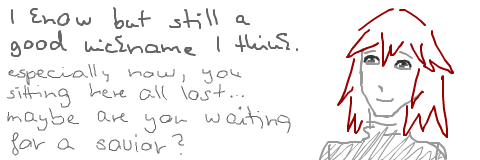 I know but still a
good nickname I think.
especially now, you
sitting here all lost...
maybe are you waiting
for a savior?